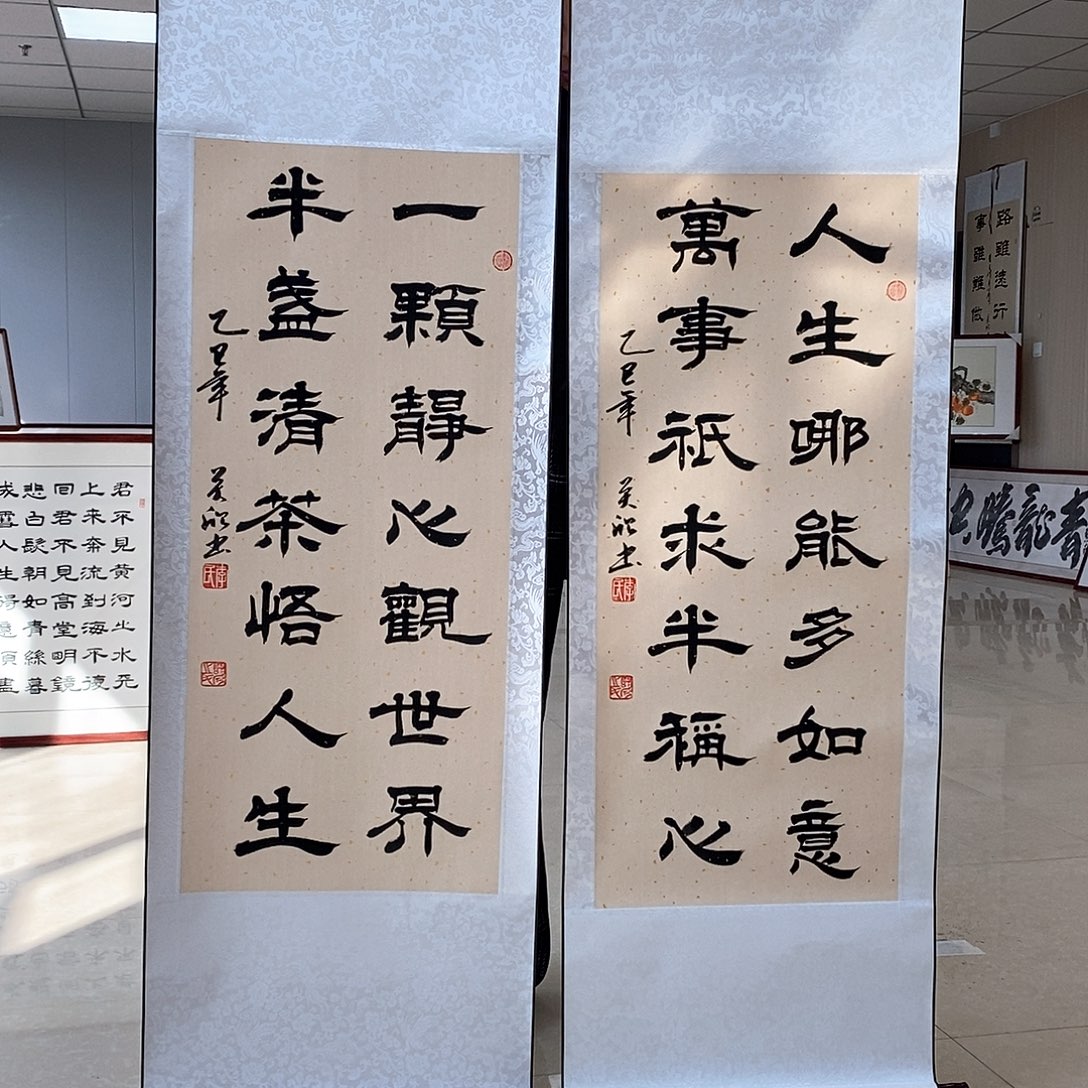 人生哪能多如意
萬事祇求半稱心
乙巳年
书
一顆靜心觀世界
半盞清茶悟人生
乙巳年
书
路雖遠行
事雖難做
青龍騰
君不見黄河之水天
上来奔流到海不復
回君不見高堂明鏡
悲白髮朝如青絲暮
成雪人生得意須盡